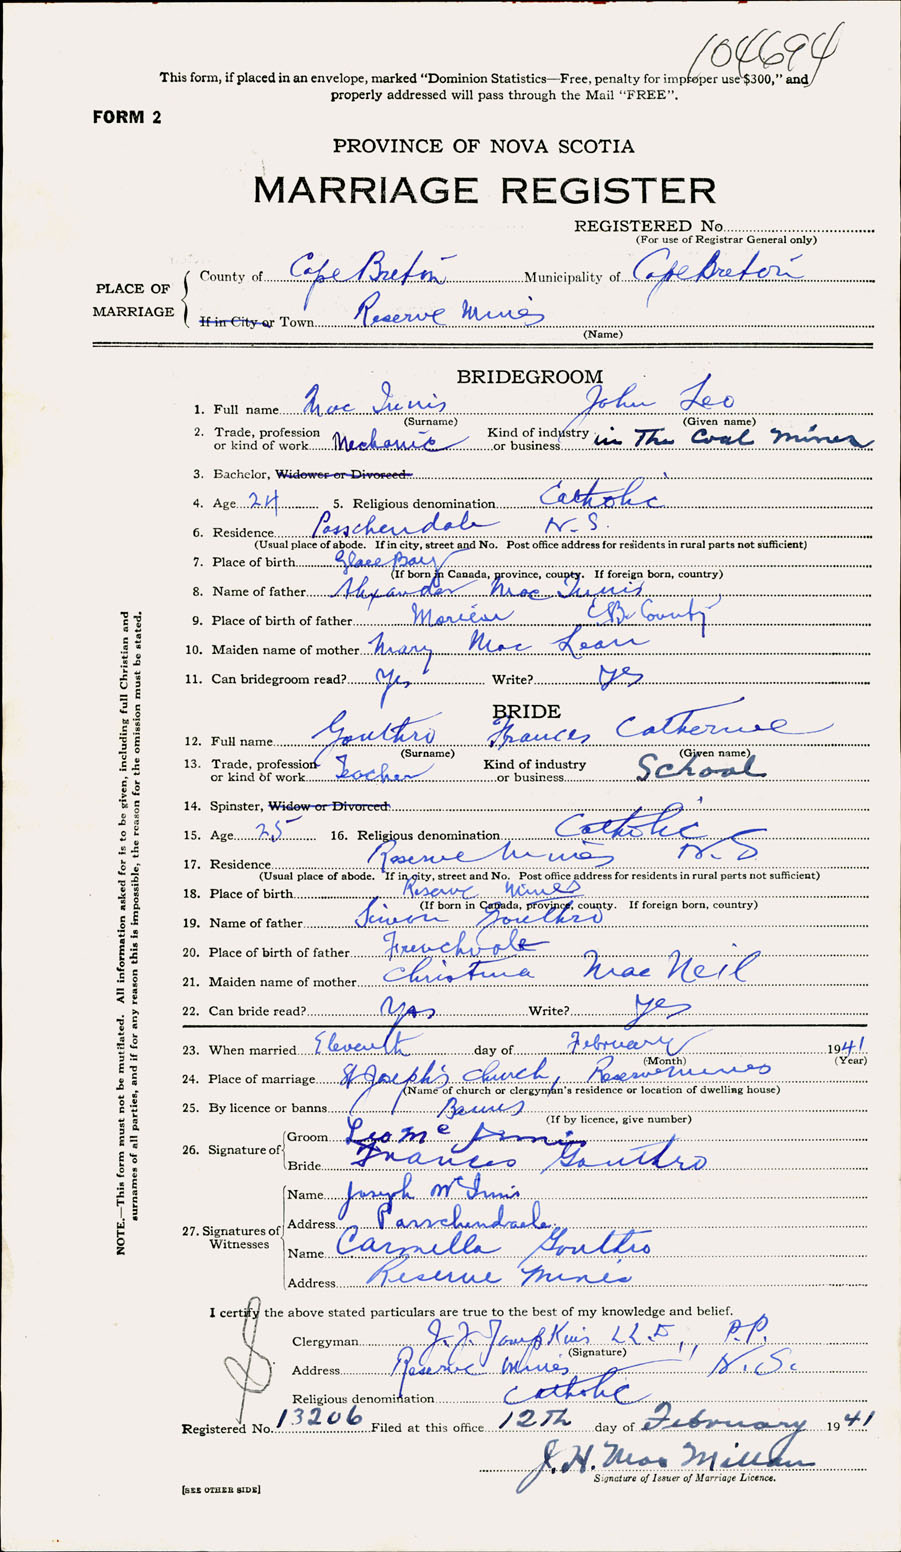 104694
This form, if placed in an envelope, marked "Dominion Statistics—Free, penalty for improper use $300," and
properly addressed will pass through the Mail "FREE".
FORM 2
PROVINCE OF NOVA SCOTIA
MARRIAGE REGISTER
REGISTERED No.
(For use of Registrar General only)
PLACE OF MARRIAGE
County of Cape Breton Municipality of Cape Breton
If in City or Town Reserve Mines
(Name)
BRIDEGROOM
1. Full name Mac Innis John Leo
(Surname) (Given name)
2. Trade, profession or kind of work Mechanic Kind of industry or business in The Coal Mines
3. Bachelor, Widower or Divorced
4. Age 24 5. Religious denomination Catholic
6. Residence Passchendale N.S.
(Usual place of abode. If in city, street and No. Post office address for residents in rural parts not sufficient)
7. Place of birth Glace Bay
(If born in Canada, province, county. If foreign born, country)
8. Name of father Alexander Mac Innis
9. Place of birth of father Morien C.B. County
10. Maiden name of mother Mary Mac Lean
11. Can bridegroom read? Yes Write? Yes
BRIDE
12. Full name Gouthro Frances Catherine
(Surname) (Given name)
13. Trade, profession or kind of work Teacher Kind of industry or business School
14. Spinster, Widow or Divorced
15. Age 25 16. Religious denomination Catholic
17. Residence Reserve Mines N.S
(Usual place of abode. If in city, street and No. Post office address for residents in rural parts not sufficient)
18. Place of birth Reserve Mines
(If born in Canada, province, county. If foreign born, country)
19. Name of father Simon Gouthro
20. Place of birth of father Frenchvale
21. Maiden name of mother Christina Mac Neil
22. Can bride read? Yes Write? Yes
23. When married Eleventh day of February 1941
(Month) (Year)
24. Place of marriage St Joseph's Church, Reserve Mines
(Name of church or clergyman's residence or location of dwelling house)
25. By licence or banns Banns
(If by licence, give number)
26. Signature of
Groom Leo Mc Innis
Bride Frances Gouthro
27. Signatures of Witnesses
Name Joseph McInnis
Address Passchendaele
Name Carmella Gouthro
Address Reserve Mines
I certify the above stated particulars are true to the best of my knowledge and belief.
Clergyman J. J. Tompkins LL.D., P.P.
(Signature)
Address Reserve Mines N.S.
Religious denomination Catholic
Registered No. 13206 Filed at this office 12th day of February 1941
J. H. Mac Millan
Signature of Issuer of Marriage Licence.
[SEE OTHER SIDE]
NOTE.—This form must not be mutilated. All information asked for is to be given, including full Christian and
surnames of all parties, and if for any reason this is impossible, the reason for the omission must be stated.